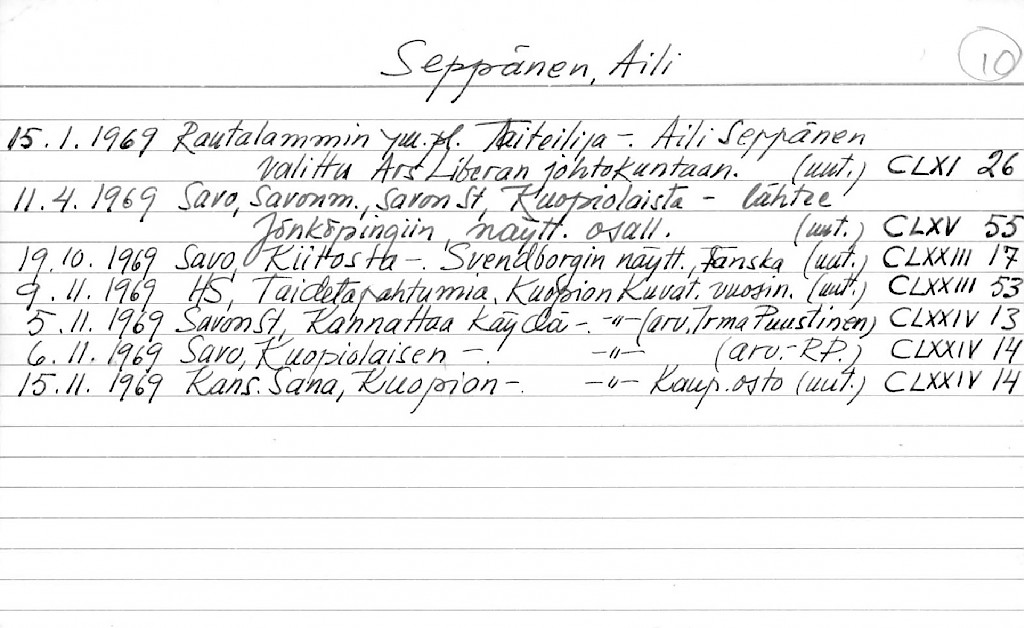 Seppänen, Aili
10
15.1.1969 Rautalammin ym.pl. Taiteilija -. Aili Seppänen
valittu Ars Liberan johtokuntaan. (uut.) CLXI 26
11.4.1969 Savo, Savonm., Savon St, Kuopiolaista - lähtee
Jönköpingiin näytt. osall. (uut.) CLXV 55
19.10.1969 Savo, Kiitosta -. Svendborgin näytt., Tanska (uut.) CLXXIII 17
9.11.1969 HS, Taidetapahtumia, Kuopion Kuvat. vuosin. (uut.) CLXXIII 53
5.11.1969 Savon St, Kannattaa käydä -. -"- (arv. Irma Puustinen) CLXXIV 13
6.11.1969 Savo, Kuopiolaisen -. -"- (arv.- R.P.) CLXXIV 14
15.11.1969 Kans. Sana, Kuopion -. -"- Kaup. osto (uut.) CLXXIV 14